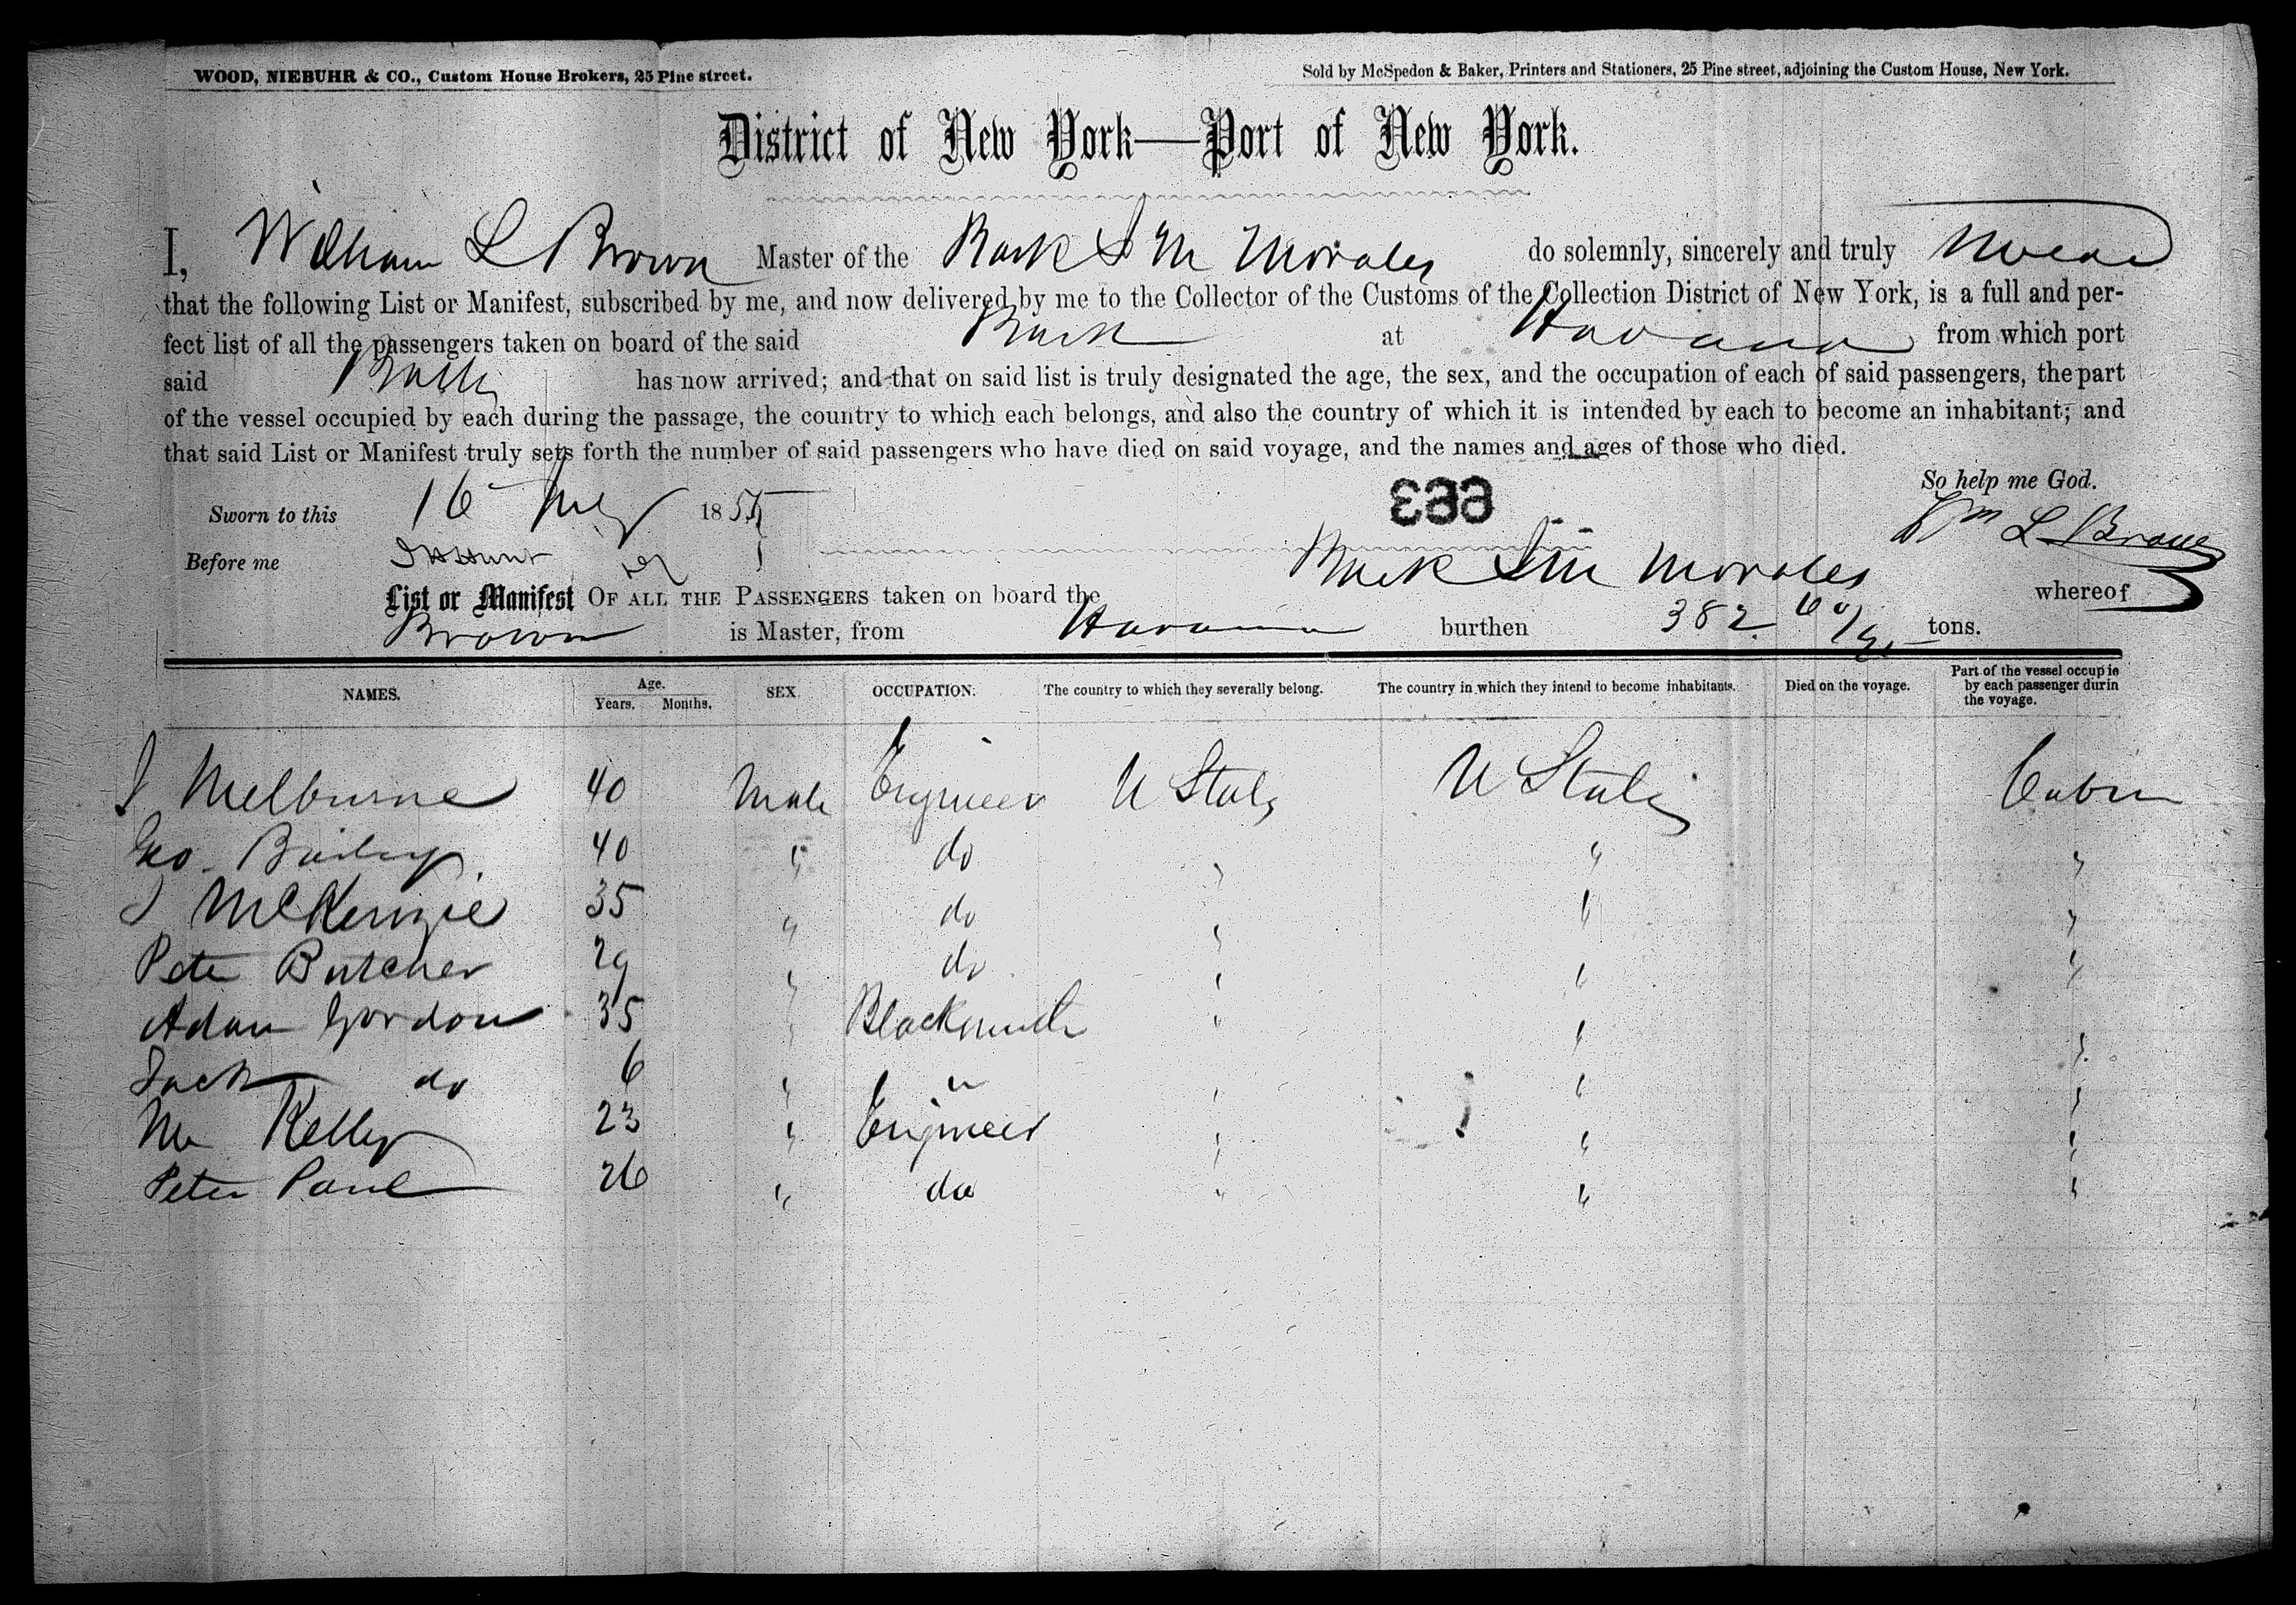 WOOD, NIEBUHR & CO., Custom House Brokers, 25 Pine street. Sold by McSpedon & Baker, Printers and Stationers, 25 Pine street, adjoining the Custom House, New York.
District of New York—Port of New York.
I, William L Brown Master of the Bark S M Morales do solemnly, sincerely and truly swear
that the following List or Manifest, subscribed by me, and now delivered by me to the Collector of the Customs of the Collection District of New York, is a full and per-
fect list of all the passengers taken on board of the said Bark at Havana from which port
said Bark has now arrived; and that on said list is truly designated the age, the sex, and the occupation of each of said passengers, the part
of the vessel occupied by each during the passage, the country to which each belongs, and also the country of which it is intended by each to become an inhabitant; and
that said List or Manifest truly sets forth the number of said passengers who have died on said voyage, and the names and ages of those who died.
So help me God.
Sworn to this 16 1855
663
Wm L Brown
Before me
List or Manifest OF ALL THE PASSENGERS taken on board the Bark S M Morales whereof
Brown is Master, from Havana burthen 382 tons.
NAMES. Age. Years. Months. SEX. OCCUPATION. The country to which they severally belong. The country in which they intend to become inhabitants. Died on the voyage. Part of the vessel occupie by each passenger durin the voyage.
J Melburne 40 Male Engineer U States U States Cabin
Geo. Bailey 40 " do " " "
J McKenzie 35 " do " " "
Pete Butcher 29 " do " " "
Adam Gordon 35 " Blacksmith " " "
Jack do 6 " " " " "
Kelly 23 " Engineer " " "
Peter Paul 26 " do " " "